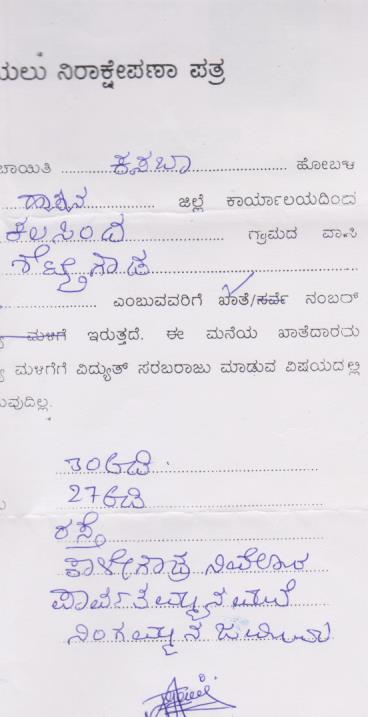 ಯಲು ನಿರಾಕ್ಷೇಪಣಾ ಪತ್ರ
ಚಾಯಿತಿ ಕಸಬಾ ಹೋಬಳಿ
ಹಾಸನ ಜಿಲ್ಲೆ ಕಾರ್ಯಾಲಯದಿಂದ
ಕಲಸಿಂದ ಗ್ರಾಮದ ವಾಸಿ
ಶೆಟ್ಟಿಗೌಡ
ಎಂಬುವವರಿಗೆ ಖಾತೆ/ಸರ್ವೆ ನಂಬರ್
ಮಳಿಗೆ ಇರುತ್ತದೆ. ಈ ಮನೆಯ ಖಾತೆದಾರರು
ಮಳಿಗೆಗೆ ವಿದ್ಯುತ್ ಸರಬರಾಜು ಮಾಡುವ ವಿಷಯದಲ್ಲಿ
ುವುದಿಲ್ಲ.
30 ಅಡಿ
27 ಅಡಿ
ರಸ್ತೆ
ಕಾಳೇಗೌಡ್ರ ನಿವೇಶನ
ಪಾರ್ವತಮ್ಮನ ಮನೆ
ನಿಂಗಮ್ಮನ ಜಮೀನು